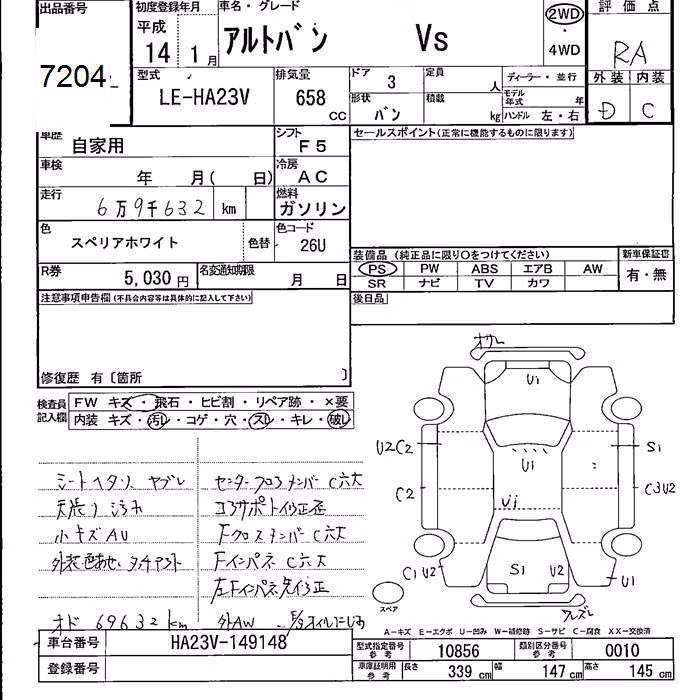 出品番号
7204
初度登録年月
平成
14 1月
車名・グレード
アルトバン Vs
2WD
・
4WD
評価点
RA
外装 内装
D C
型式
LE-HA23V
排気量
658
CC
ドア
3
定員
人
形状
バン
積載
kg
ディーラー・並行
モデル年式
年
ハンドル 左・右
車歴
自家用
シフト
F5
車検
年 月( 日)
冷房
AC
走行
6万9千632 km
燃料
ガソリン
色
スペリアホワイト
色替
色コード
26U
R券
5,030 円
名変通知期限
月 日
セールスポイント(正常に機能するものに限ります)
装備品 (純正品に限り○をつけてください)
新車保証書
PS PW ABS エアB AW
有・無
SR ナビ TV カワ
後日品
注意事項申告欄(不具合内容等は具体的に記入して下さい)
修復歴 有〔箇所 〕
検査員
記入欄
FW キズ・飛石・ヒビ割・リペア跡・×要
内装 キズ・汚レ・コゲ・穴・スレ・キレ・破レ
シートヘタリ ヤブレ
天張り汚れ
小キズAU
外装色あせ、タッチアト
オド 69632km
センターフロアメンバーC穴大
コアサポート修正歪
FクロスメンバーC穴大
FインパネC穴大
左Fインパネ先修正
外AW
オサレ
U1
U1
U1
S1 U2
U2C2
C2
C1 U2
S1
C3U2
U1
スペア
フレズレ
A―キズ E―エクボ U―凹み W―補修跡 S―サビ C―腐食 XX―交換済
車台番号
HA23V-149148
登録番号
型式指定番号
参考
10856
類別区分番号
参考
0010
車庫証明用
参考
長さ
339 cm
幅
147 cm
高さ
145 cm